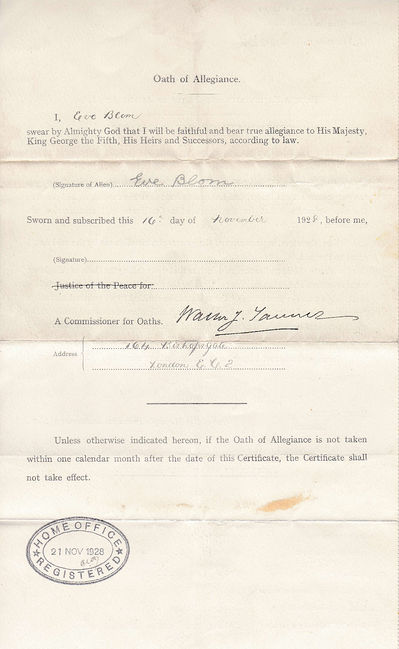 Oath of Allegiance.
I, Eve Blom
swear by Almighty God that I will be faithful and bear true allegiance to His Majesty,
King George the Fifth, His Heirs and Successors, according to law.
(Signature of Alien) Eve Blom
Sworn and subscribed this 16th day of November 1928, before me,
(Signature)
Justice of the Peace for
A Commissioner for Oaths.
Address 164 Bishopsgate
London, E.C.2
Unless otherwise indicated hereon, if the Oath of Allegiance is not taken
within one calendar month after the date of this Certificate, the Certificate shall
not take effect.
HOME OFFICE
21 NOV 1928
REGISTERED